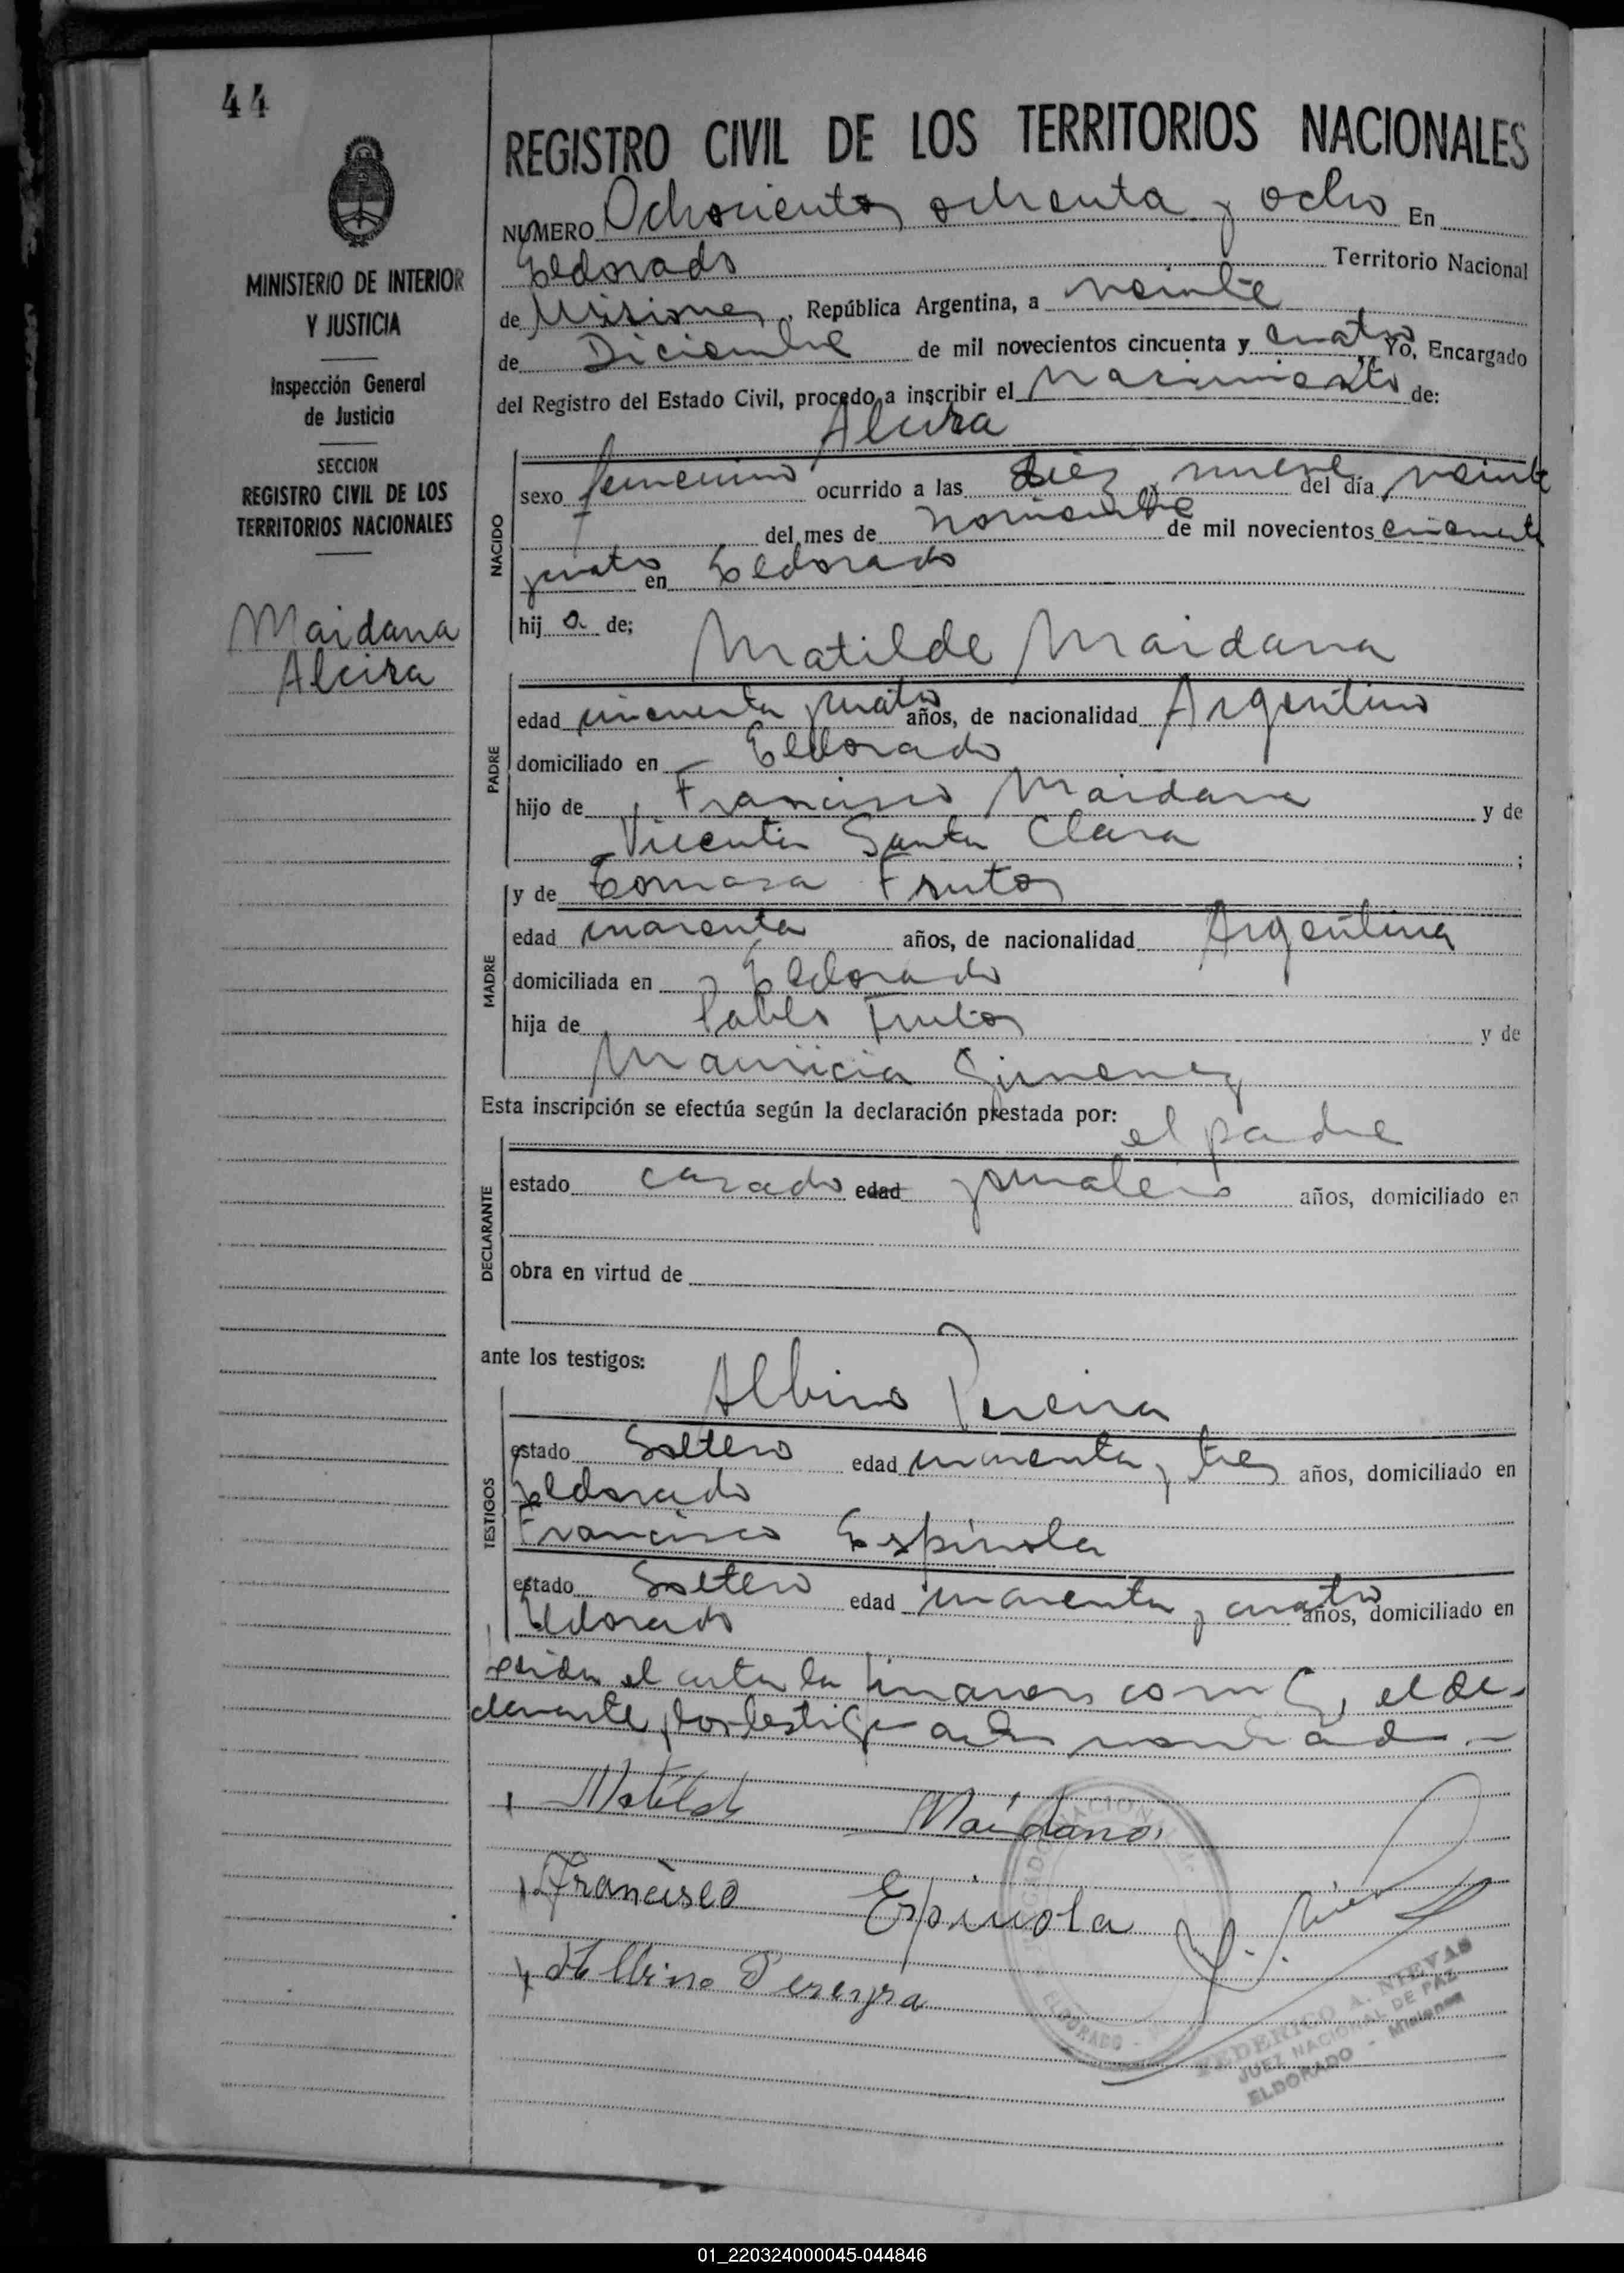 44
REGISTRO CIVIL DE LOS TERRITORIOS NACIONALES
NUMERO Ochocientos ochenta y ocho En
Eldorado Territorio Nacional
de Misiones, República Argentina, a veinte
de Diciembre de mil novecientos cincuenta y cuatro Yo, Encargado
del Registro del Estado Civil, procedo a inscribir el Nacimiento de:
Alcira
MINISTERIO DE INTERIOR
Y JUSTICIA
Inspección General
de Justicia
SECCION
REGISTRO CIVIL DE LOS
TERRITORIOS NACIONALES
Maidana
Alcira
NACIDO
sexo femenino ocurrido a las diez y nueve del día veinte
del mes de noviembre de mil novecientos cincuenta
y cuatro en Eldorado
hij a de;
Matilde Maidana
PADRE
edad cincuenta y cuatro años, de nacionalidad Argentino
domiciliado en Eldorado
hijo de Francisco Maidana y de
Vicenta Santa Clara ;
y de Tomasa Frutos
MADRE
edad cuarenta años, de nacionalidad Argentina
domiciliada en Eldorado
hija de Pablo Frutos y de
Mauricia Gimenez
Esta inscripción se efectúa según la declaración prestada por:
el padre
DECLARANTE
estado casado edad jornalero años, domiciliado en
obra en virtud de
ante los testigos:
Albino Pereira
TESTIGOS
estado Soltero edad cuarenta y tres años, domiciliado en
Eldorado
Francisco Espinola
estado Soltero edad cuarenta y cuatro años, domiciliado en
Eldorado
leida el acta la firmaron el de-
clarante y los testigos
Matilde Maidana
Francisco Espinola
Albino Pereyra
ELDORADO
FEDERICO A. NIEVAS
JUEZ NACIONAL DE PAZ
ELDORADO - Misiones
01_220324000045-044846